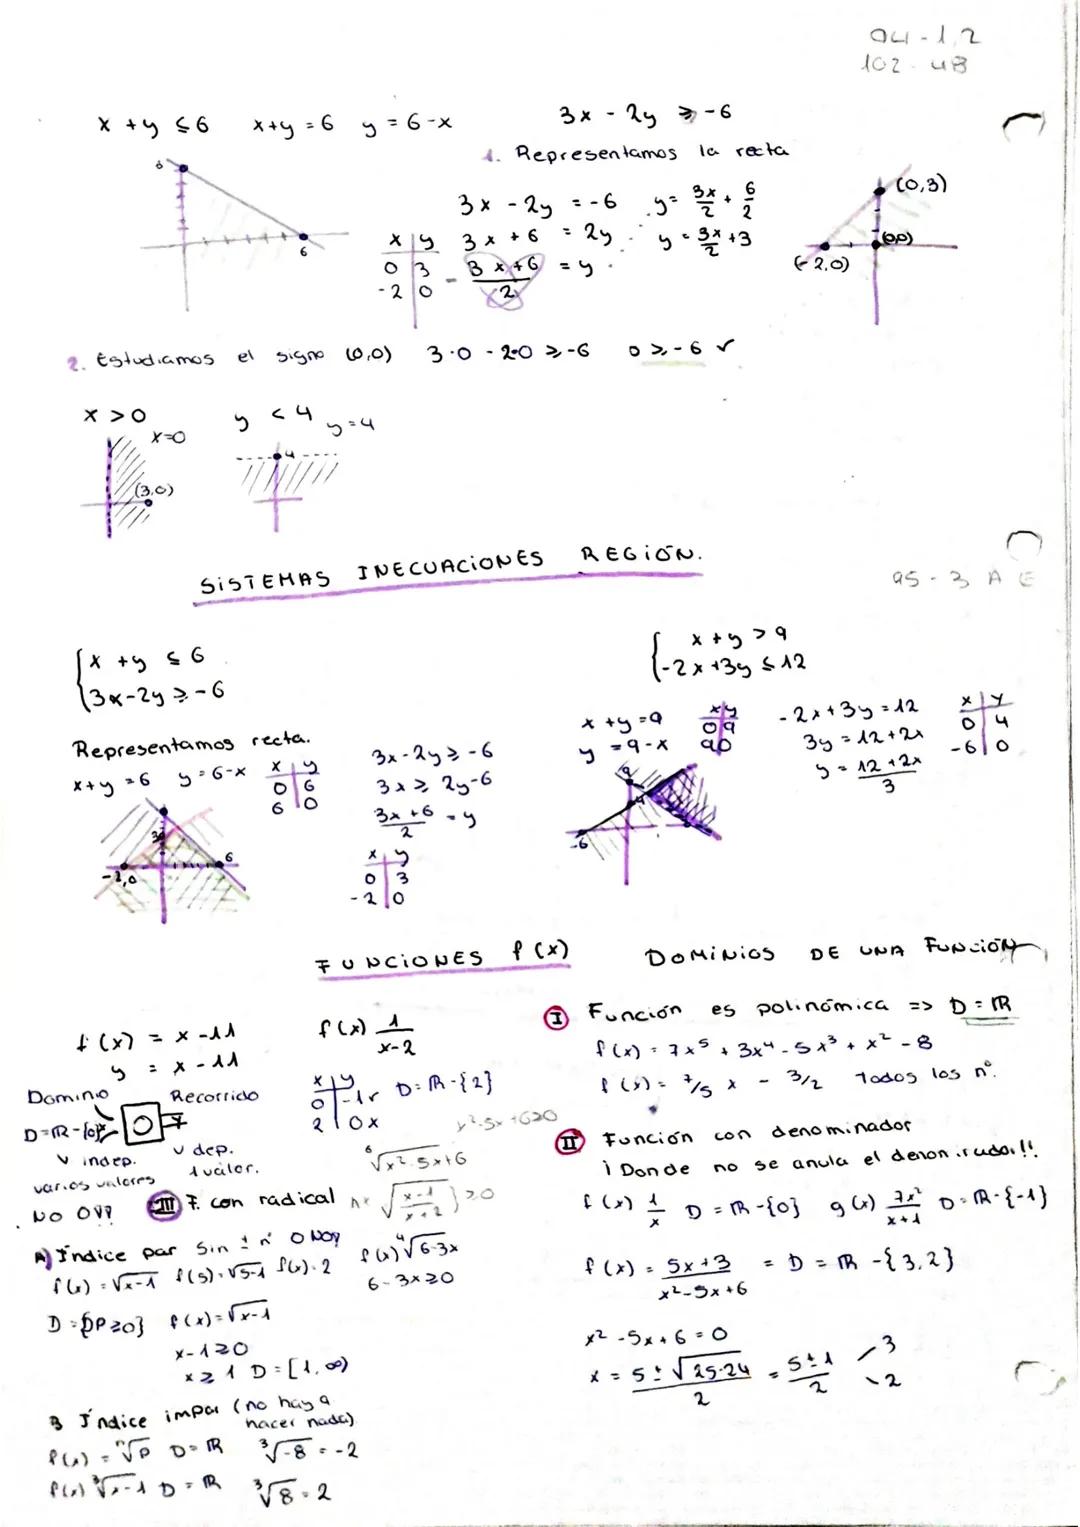 94-1,2
102-4B
x + y ≤ 6 x+y = 6 y = 6-x
6
6
3x - 2y ≥ -6
1. Representamos la recta
3x - 2y = -6 y = 3x/2 + 6/2
3x + 6 = 2y y = 3x/2 + 3
3x+6/2 = y
x | y
0 | 3
-2 | 0
(0,3)
(0,0)
(-2,0)
2. Estudiamos el signo (0,0) 3·0 - 2·0 ≥ -6 0 ≥ -6 ✓
x > 0
x=0
(3,0)
y < 4 y=4
4
SISTEMAS INECUACIONES REGIÓN.
95-3 A E
{ x + y ≤ 6
{ 3x-2y ≥ -6
Representamos recta.
x+y=6 y=6-x
x | y
0 | 6
6 | 0
3x-2y ≥ -6
3x ≥ 2y-6
3x+6/2 = y
x | y
0 | 3
-2 | 0
3
6
-2,0
{ x + y > 9
{ -2x+3y ≤ 12
x + y = 9
y = 9-x
x | y
0 | 9
9 | 0
-2x+3y = 12
3y = 12+2x
y = 12+2x/3
x | y
0 | 4
-6 | 0
9
4
-6
FUNCIONES f(x)
f(x) = x-11
y = x-11
Dominio Recorrido
D=R-{0}
v indep.
varios valores
v dep.
1 valor.
NO OV?
f(x) 1/x-2
x | y
0 | -1
2 | 0 x
D=R-{2}
x²-5x+6≥0
⁶√x²-5x+6
√x-1/x+2 } ≥0
III F. con radical
A) Índice par Sin ± nº O NO?
f(x)=√x-1 f(5)=√5-1 f(x)=2
f(x) ⁴√6-3x
6-3x≥0
D={P≥0} f(x)=√x-1
x-1≥0
x≥1 D=[1,∞)
B Índice impar (no hay q
hacer nada)
f(x) = ⁿ√P D=R ³√-8 = -2
f(x) ³√x-1 D=R ³√8 = 2
DOMINIOS DE UNA FUNCIÓN
I Función es polinómica => D=R
f(x) = 7x⁵ + 3x⁴ - 5x³ + x² - 8
f(x) = 7/5 x - 3/2 Todos los nº.
II Función con denominador
¡Donde no se anula el denominador!!
f(x) 1/x D=R-{0} g(x) 7x²/x+1 D=R-{-1}
f(x) = 5x+3/x²-5x+6 = D=R-{3,2}
x²-5x+6=0
x = 5±√25-24/2 = 5±1/2
3
2